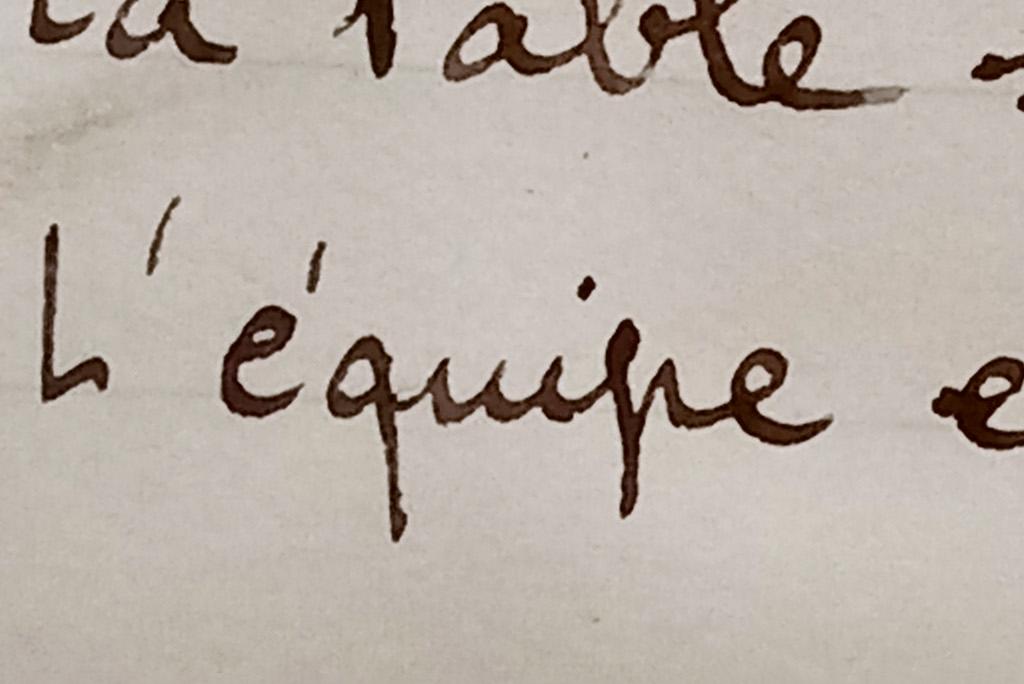 la Table
L'équipe e